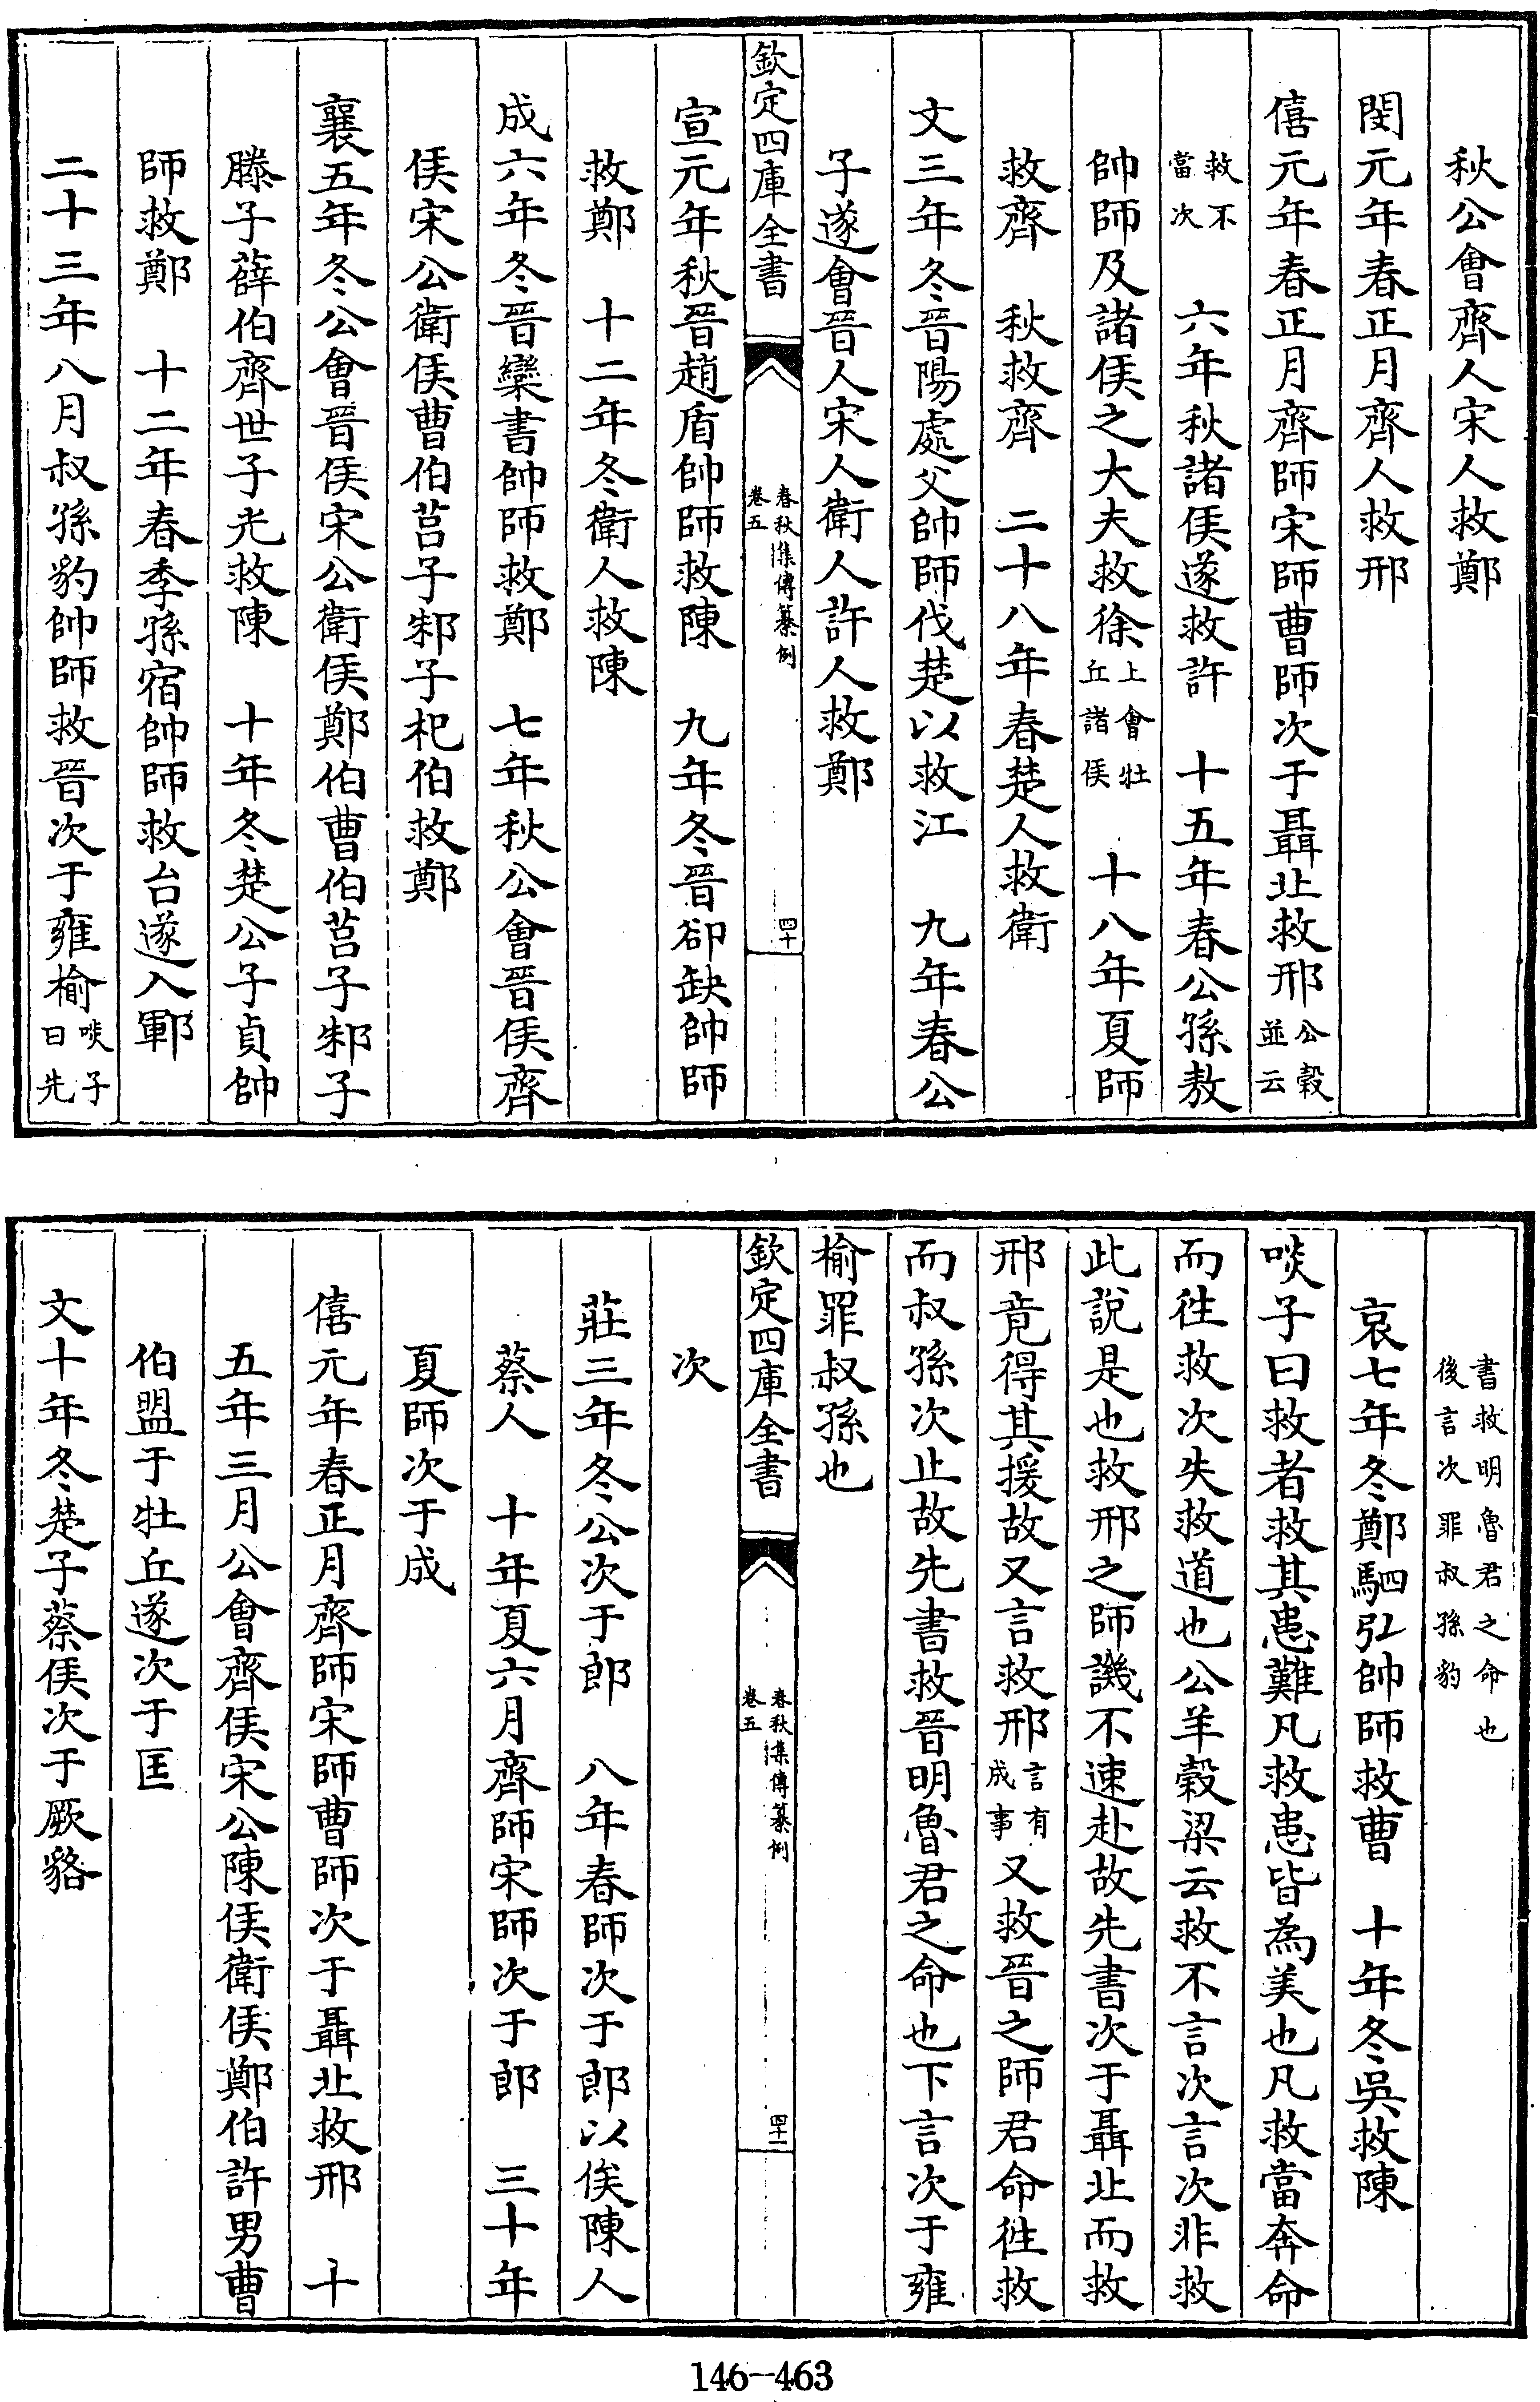 秋公會齊人宋人救鄭
閔元年春正月齊人救邢
僖元年春正月齊師宋師曹師次于聶北救邢公穀並云
救不當次　六年秋諸侯遂救許　十五年春公孫敖
帥師及諸侯之大夫救徐上會牡丘諸侯　十八年夏師
救齊　秋救齊　二十八年春楚人救衛
文三年冬晉陽處父帥師伐楚以救江　九年春公
子遂會晉人宋人衛人許人救鄭
欽定四庫全書　春秋集傳纂例卷五　四十
宣元年秋晉趙盾帥師救陳　九年冬晉郤缺帥師
救鄭　十二年冬衛人救陳
成六年冬晉欒書帥師救鄭　七年秋公會晉侯齊
侯宋公衛侯曹伯莒子邾子杞伯救鄭
襄五年冬公會晉侯宋公衛侯鄭伯曹伯莒子邾子
滕子薛伯齊世子光救陳　十年冬楚公子貞帥
師救鄭　十二年春季孫宿帥師救台遂入鄆
二十三年八月叔孫豹帥師救晉次于雍榆啖子曰先
書救明魯君之命也後言次罪叔孫豹
哀七年冬鄭駟弘帥師救曹　十年冬吳救陳
啖子曰救者救其患難凡救患皆為美也凡救當奔命
而往救次失救道也公羊穀梁云救不言次言次非救
此說是也救邢之師譏不速赴故先書次于聶北而救
邢竟得其援故又言救邢言有成事又救晉之師君命往救
而叔孫次止故先書救晉明魯君之命也下言次于雍
榆罪叔孫也
欽定四庫全書　春秋集傳纂例卷五　四十一
次
莊三年冬公次于郎　八年春師次于郎以俟陳人
蔡人　十年夏六月齊師宋師次于郎　三十年
夏師次于成
僖元年春正月齊師宋師曹師次于聶北救邢　十
五年三月公會齊侯宋公陳侯衛侯鄭伯許男曹
伯盟于牡丘遂次于匡
文十年冬楚子蔡侯次于厥貉
146-463